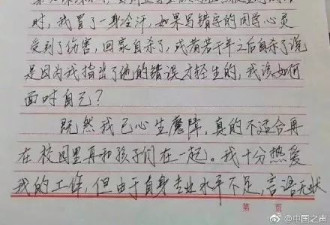 时，我冒了一身冷汗，如果写错字的因字心灵
受到了伤害，回家自杀了，或者若干年之后自杀了说
是因为我指出了她的错误才轻生的，我该如何
面对自己？
既然我已心生魔障，真的不适合再
在校园里再和孩子们在一起。我十分热爱
我的工作，但由于自身专业水平不足，言语无状
第 页
@中国之声